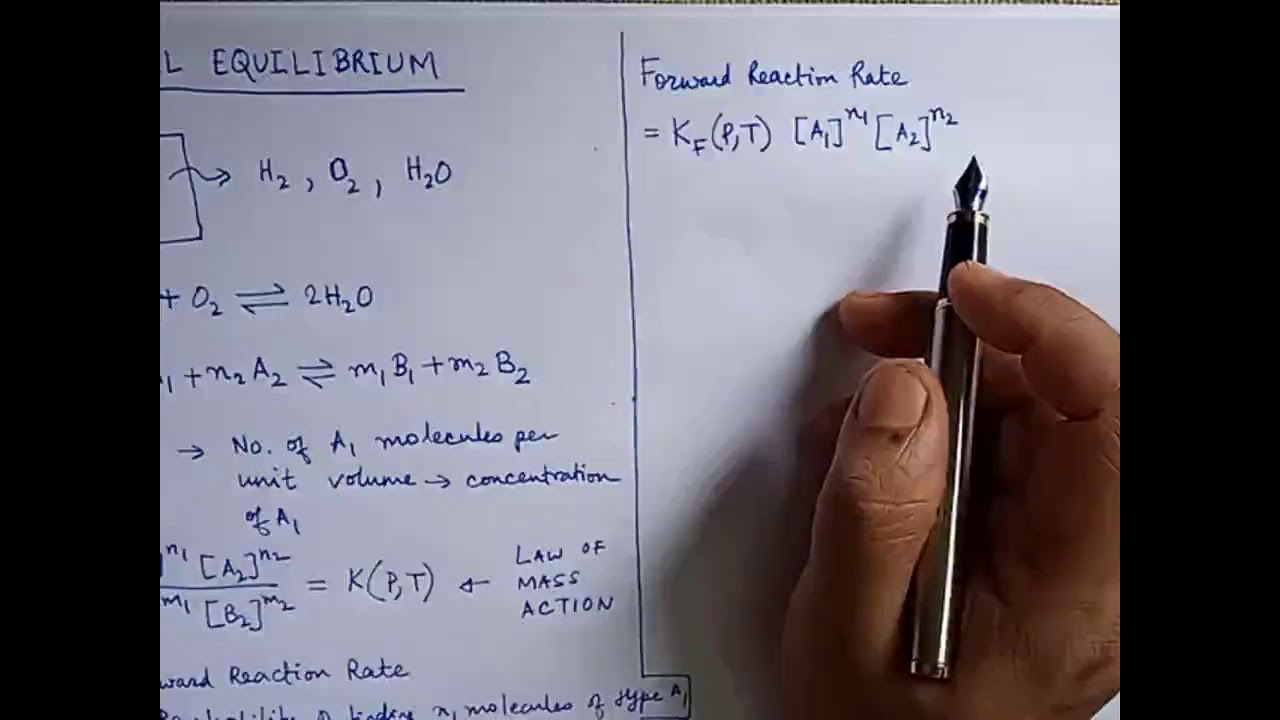 L EQUILIBRIUM
H₂ , O₂ , H₂O
+ O₂ ⇌ 2H₂O
₁ + n₂A₂ ⇌ m₁B₁ + m₂B₂
→ No. of A₁ molecules per
unit volume → concentration
of A₁
n₁ [A₂]^n₂ / m₁ [B₂]^m₂ = K(P,T) ← LAW OF
MASS
ACTION
ward Reaction Rate
n₁ molecules of type A₁
Forward Reaction Rate
= K_F(P,T) [A₁]^n₁ [A₂]^n₂